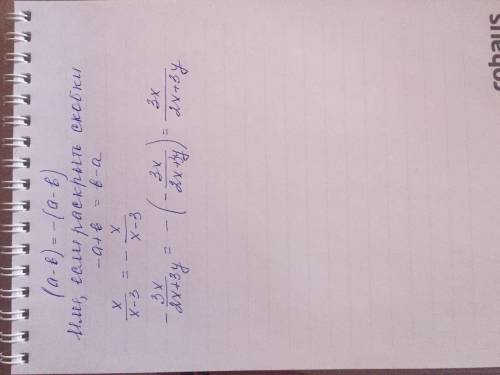 (a-в) = -(a-в)
Или, если раскрыть скобки
-a+в = в-a
x/(x-3) = - x/(x-3)
- 3x/(2x+3y) = - (- 3x/(2x+3y)) = 3x/(2x+3y)
cobaus